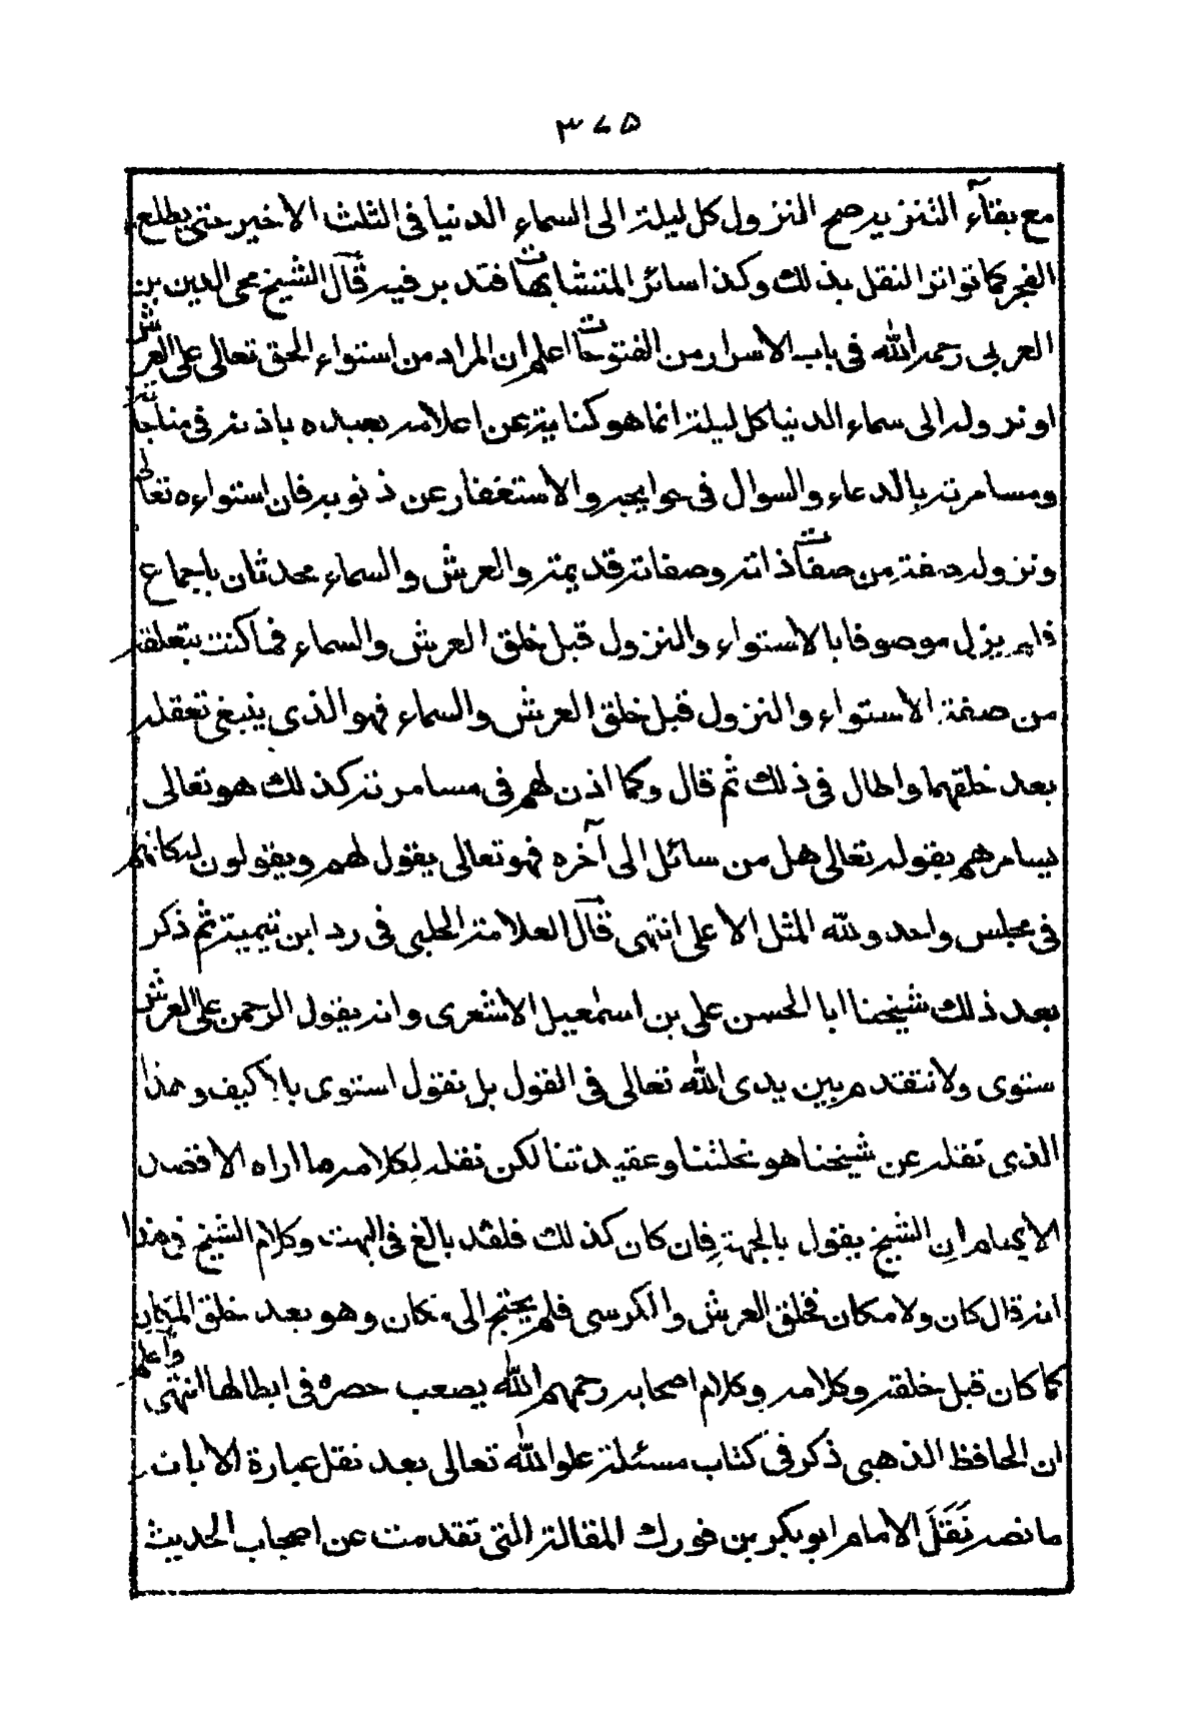 ٣٧٥
مع بقآء التنزيه صح النزول كل ليلة الى السماء الدنيا فى الثلث الاخير حتى يطلع
الفجر كما تواتر النقل بذلك وكذا سائر المتشابهات فتدبر فيه قال الشيخ محى الدين بن
العربى رحمه الله فى باب الاسرار من الفتوحات اعلم ان المراد من استواء الحق تعالى على العرش
او نزوله الى سماء الدنيا كل ليلة انما هو كناية عن اعلامه بعبده باذنه فى مناجاته
ومسامرته بالدعاء والسوال فى حوايجه والاستغفار عن ذنوبه فان استواءه تعالى
ونزوله صفة من صفات ذاته وصفاته قديمة والعرش والسماء محدثان باجماع
فلم يزل موصوفا بالاستواء والنزول قبل خلق العرش والسماء فما كنت بتعلقه
من صفة الاستواء والنزول قبل خلق العرش والسماء فهو الذى ينبغ تعقله
بعد خلقهما واطال فى ذلك ثم قال وكما اذن لهم فى مسامرته كذلك هو تعالى
يسامرهم بقوله تعالى هل من سائل الى آخره فهو تعالى يقول لهم ويقولون له كانهم
فى مجلس واحد ولله المثل الاعلى انتهى قال العلامة الحلبى فى رد ابن تيمية ثم ذكر
بعد ذلك شيخنا ابا الحسن على بن اسمعيل الاشعرى وانه يقول الرحمن على العرش
ستوى ولانتقدم بين يدى الله تعالى فى القول بل نقول استوى بلا كيف وهذا
الذى نقله عن شيخنا هو نحلتنا وعقيدتنا لكن نقله لكلامه ما اراه الا قصد
الايهام ان الشيخ يقول بالجهة فان كان كذلك فلقد بالغ فى البهت وكلام الشيخ فى هذا
انه قال كان ولا مكان فخلق العرش والكرسى فلم يحتج الى مكان وهو بعد خلق المكان
كما كان قبل خلقه وكلامه وكلام اصحابه رحمهم الله يصعب حصره فى ابطالها انتهى واعلم
ان الحافظ الذهبى ذكر فى كتاب مسئلة علو الله تعالى بعد نقل عبارة الابانة
ما نصه نَقَلَ الامام ابو بكر بن فورك المقالة التى تقدمت عن اصحاب الحديث